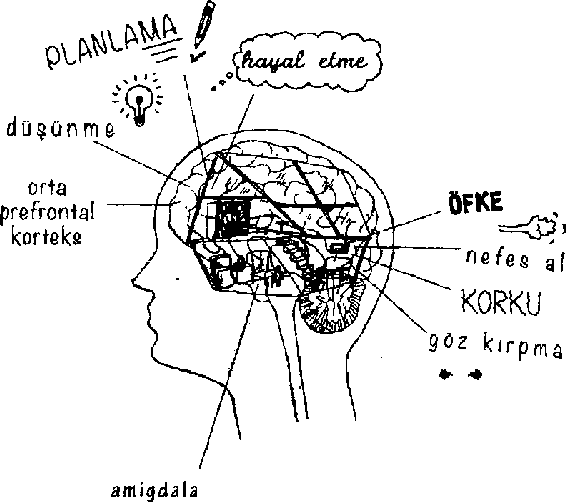 PLANLAMA
hayal etme
düşünme
orta
prefrontal
korteks
ÖFKE
nefes al
KORKU
göz kırpma
amigdala